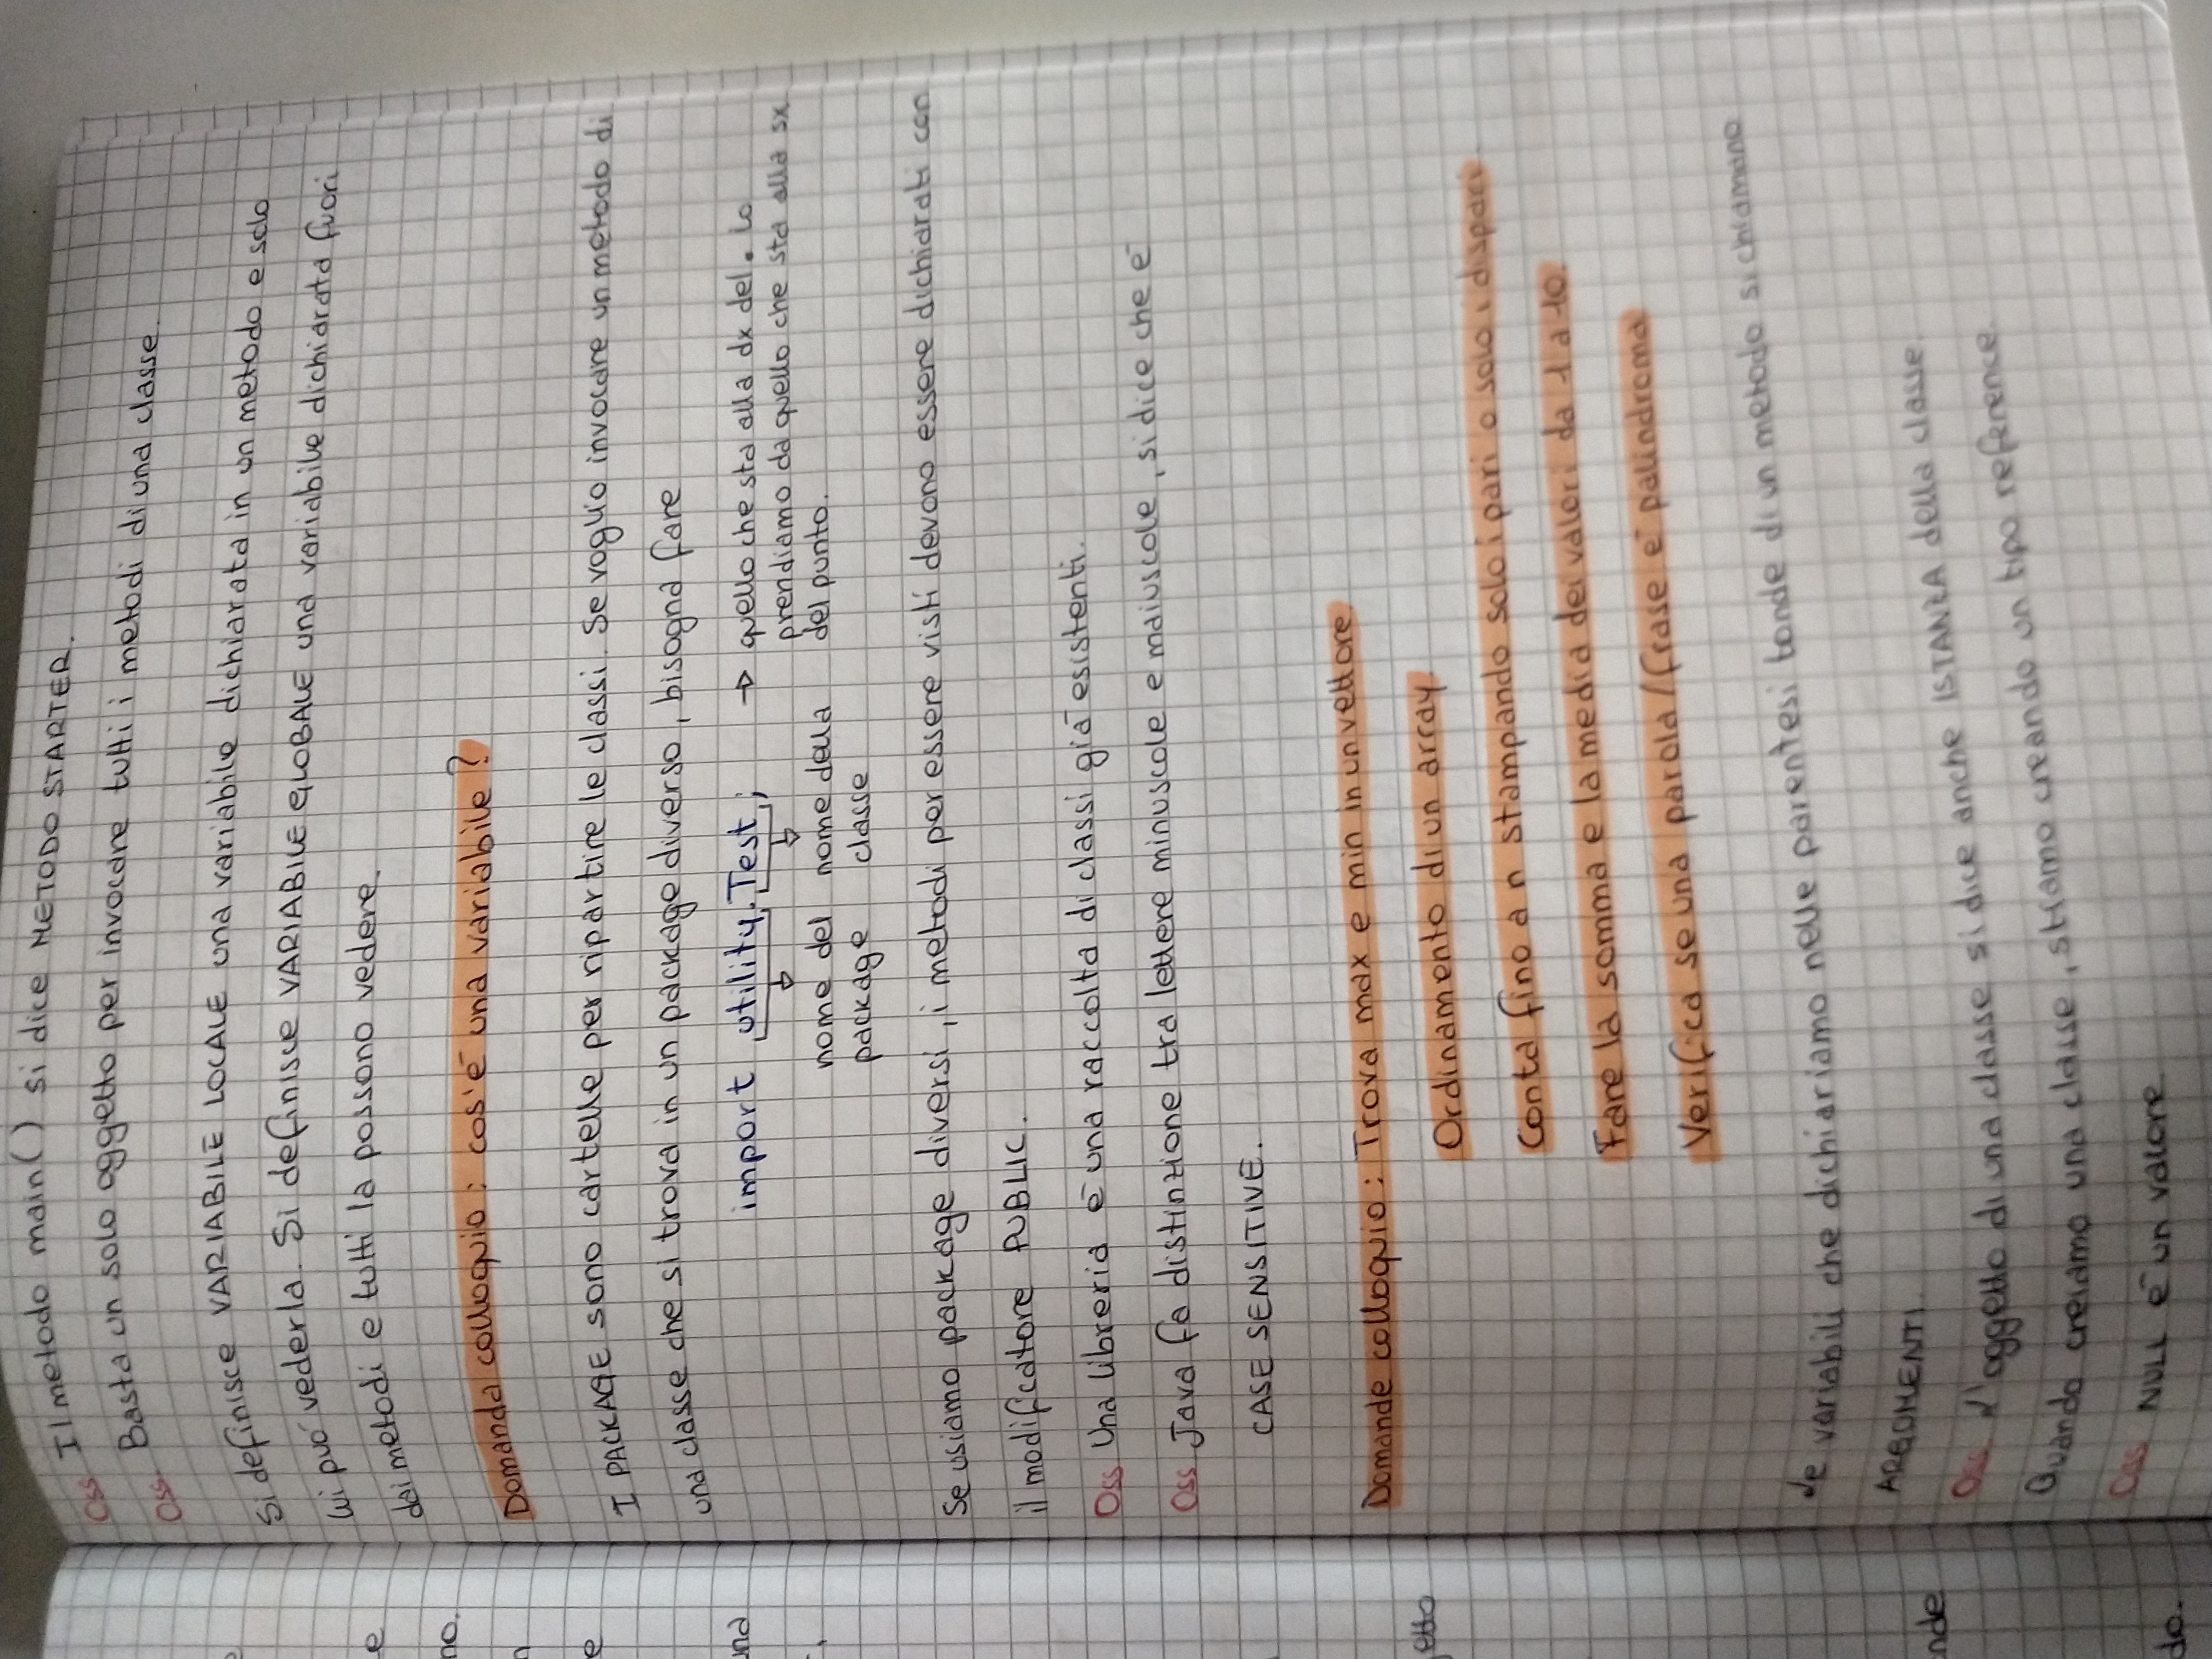 Oss Il metodo main() si dice METODO STARTER.
Oss. Basta un solo oggetto per invocare tutti i metodi di una classe.
Si definisce VARIABILE LOCALE una variabile dichiarata in un metodo e solo
lui può vederla. Si definisce VARIABILE GLOBALE una variabile dichiarata fuori
dai metodi e tutti la possono vedere.
Domanda colloquio: cos'è una variabile?
I PACKAGE sono cartelle per ripartire le classi. Se voglio invocare un metodo di
una classe che si trova in un package diverso, bisogna fare
import utility.Test; → quello che sta alla dx del . lo
prendiamo da quello che sta alla sx
nome del nome della del punto.
package classe
Se usiamo package diversi, i metodi per essere visti devono essere dichiarati con
il modificatore PUBLIC.
Oss Una libreria è una raccolta di classi già esistenti.
Oss Java fa distinzione tra lettere minuscole e maiuscole, si dice che è
CASE SENSITIVE.
Domande colloquio: Trova max e min in un vettore
Ordinamento di un array.
Conta fino a n stampando solo i pari o solo i dispari
Fare la somma e la media dei valori da 1 a 10.
Verifica se una parola/frase è palindroma
Le variabili che dichiariamo nelle parentesi tonde di un metodo si chiamano
ARGOMENTI.
Oss L'oggetto di una classe si dice anche ISTANZA della classe.
Quando creiamo una classe, stiamo creando un tipo reference.
Oss NULL è un valore
e
no.
n
e
una
etto
nde
do.